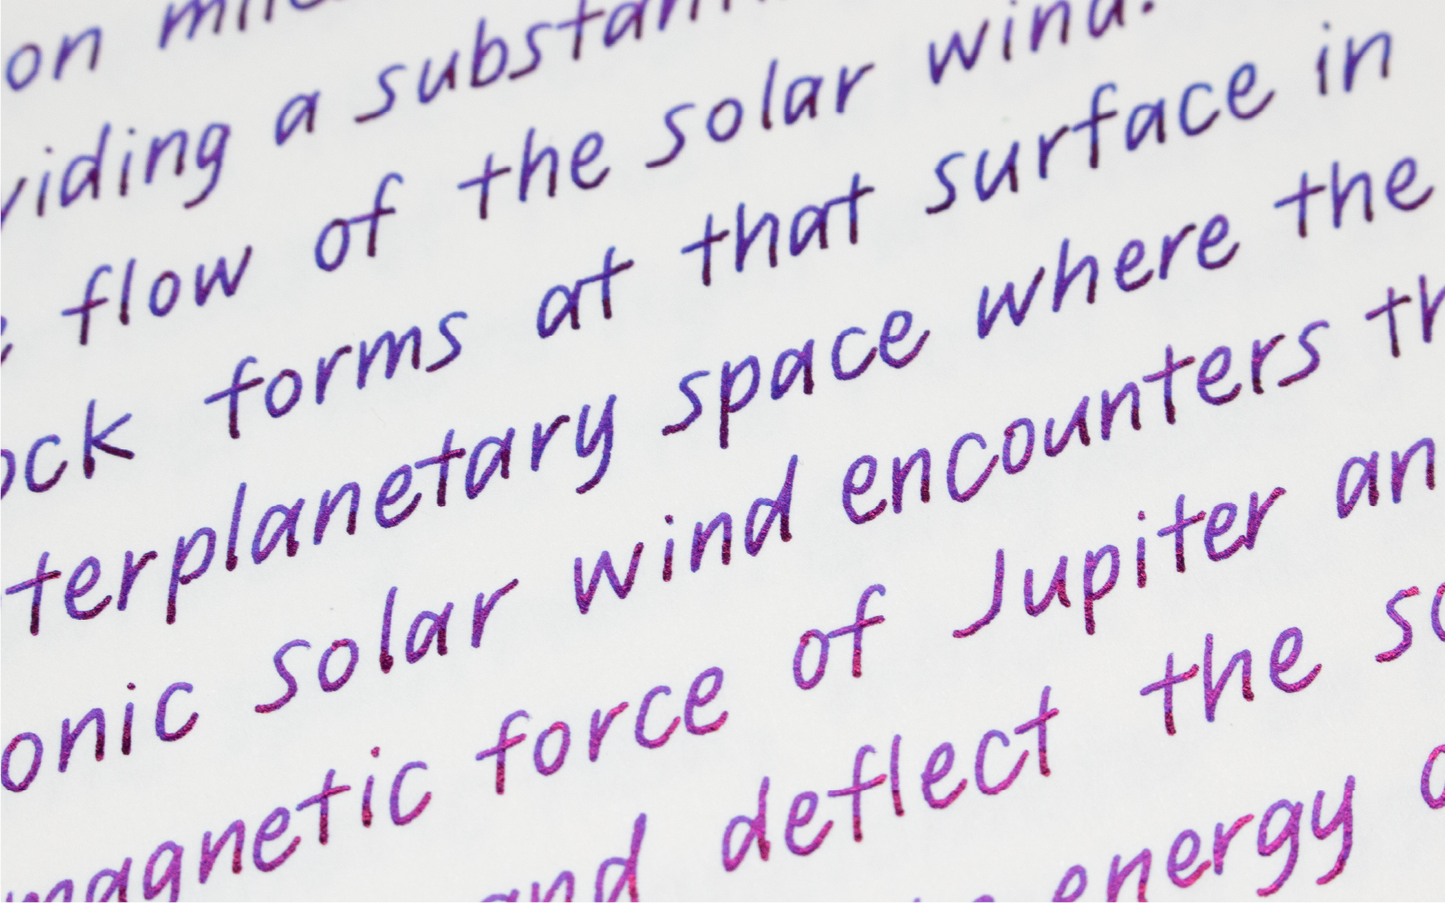 on
viding a substan
flow of the solar wind.
ock forms at that surface in
terplanetary space where the
onic solar wind encounters th
magnetic force of Jupiter an
and deflect the so
energy